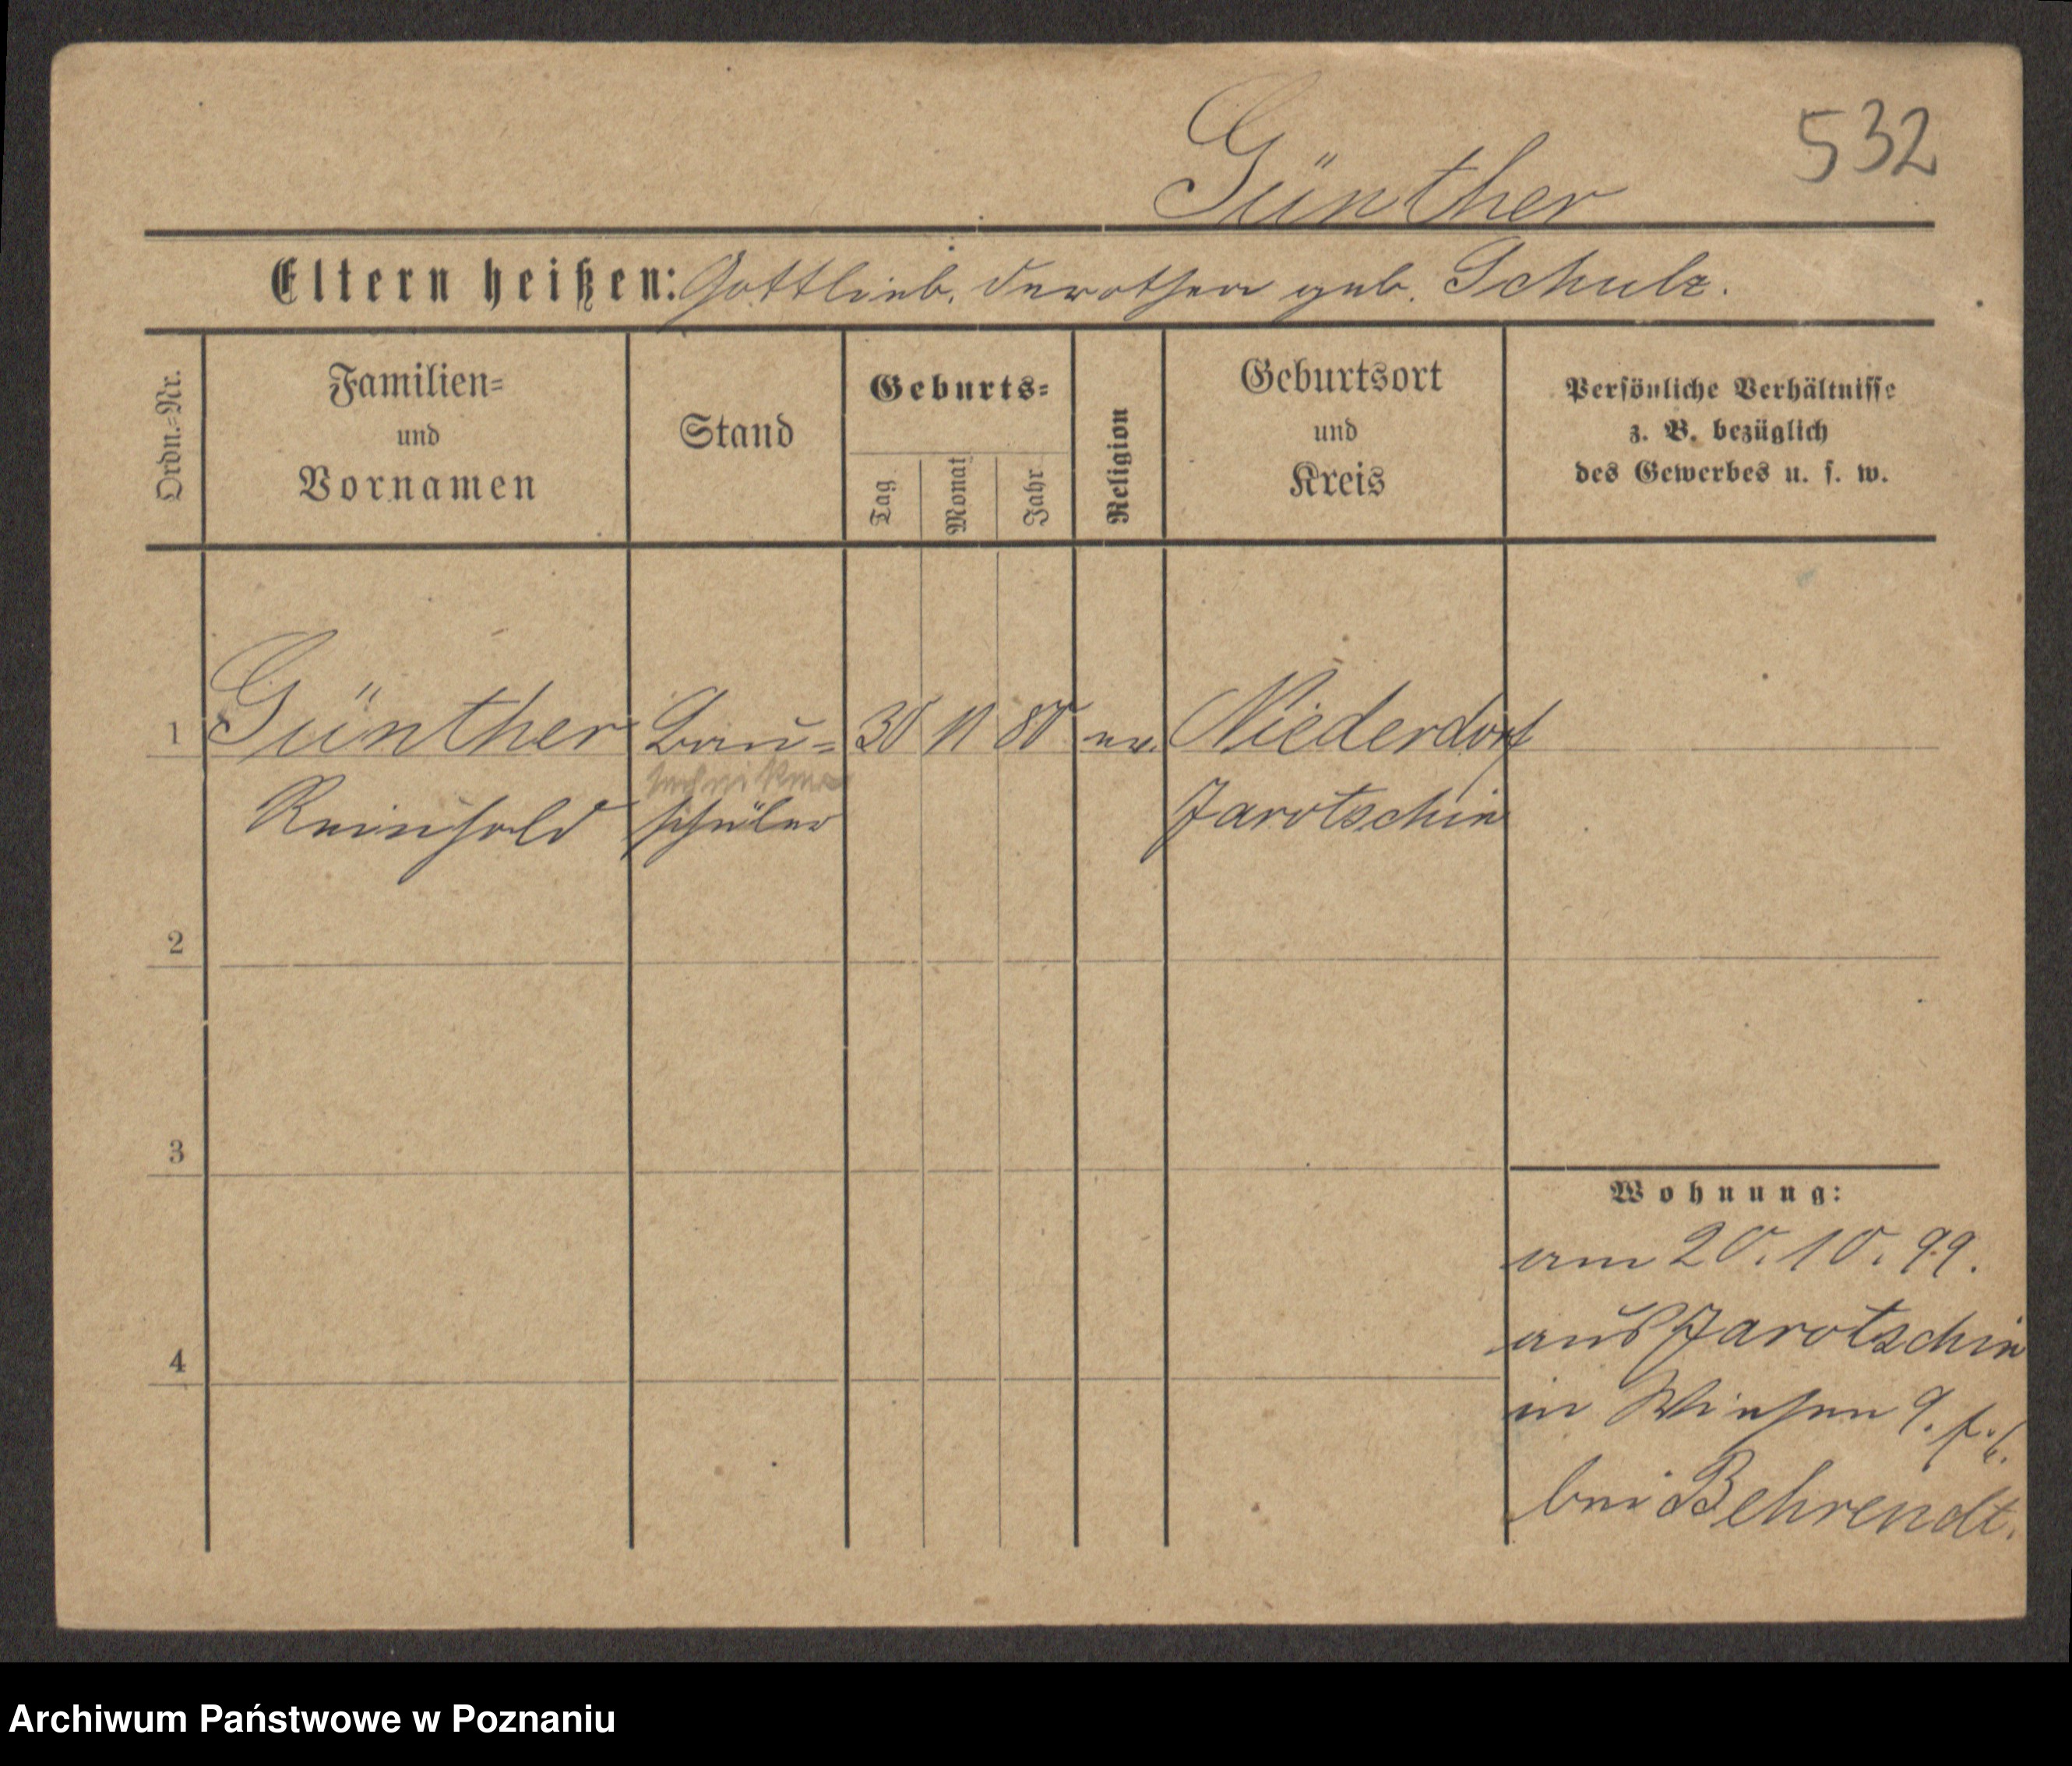 532
Günther
Eltern heißen: Gottlieb, Dorothea geb. Schulz.
Ordn.=Nr.
Familien=
und
Vornamen
Stand
Geburts=
Tag
Monat
Jahr
Religion
Geburtsort
und
Kreis
Persönliche Verhältnisse
z. B. bezüglich
des Gewerbes u. s. w.
1 Günther Bau= 30 11 80 ev. Niederdorf
Reinhold schüler Jarotschin
2
3
4
Wohnung:
am 20. 10. 99.
aus Jarotschin
in Wiesen 9.
bei Behrendt.
Archiwum Państwowe w Poznaniu